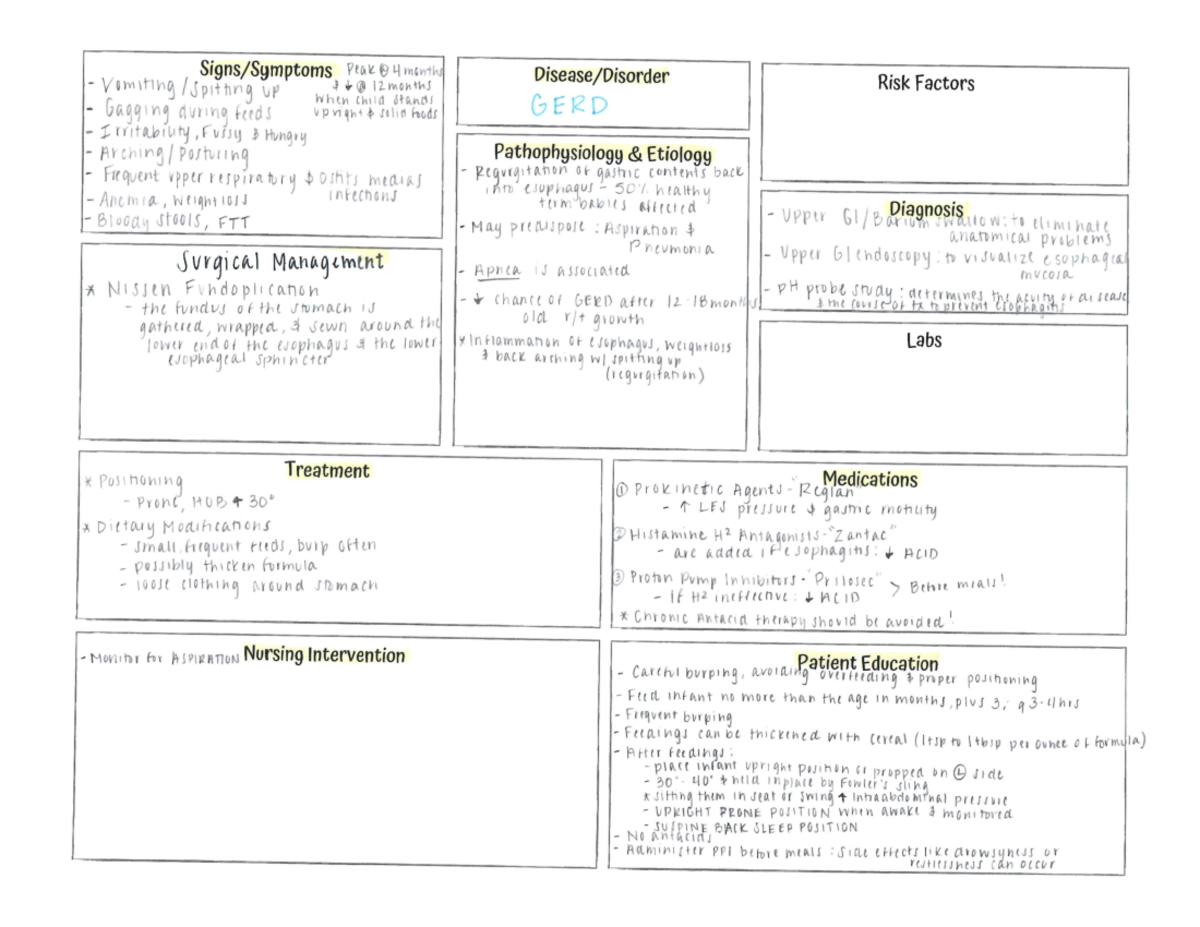 Signs/Symptoms
Peak @ 4 months
& ↓ @ 12 months
when child stands
upright & solid foods
- Vomiting/Spitting up
- Gagging during feeds
- Irritability, Fussy & Hungry
- Arching/Posturing
- Frequent upper respiratory & Ostits medias
infections
- Anemia, weightloss
- Bloody stools, FTT
Surgical Management
* Nissen Fundoplication
- the fundus of the stomach is
gathered, wrapped, & sewn around the
lower end of the esophagus & the lower
esophageal sphincter
Disease/Disorder
GERD
Pathophysiology & Etiology
- Regurgitation of gastric contents back
into esophagus - 50% healthy
term babies affected
- May predispose: Aspiration &
Pneumonia
- Apnea is associated
- ↓ chance of GERD after 12-18 months
old r/t growth
* Inflammation of esophagus, weightloss
& back arching w/ spitting up
(regurgitation)
Risk Factors
Diagnosis
- Upper GI/Barium swallow: to eliminate
anatomical problems
- Upper GI endoscopy: to visualize esophageal
mucosa
- pH probe study: determines the acuity of disease
& the course of tx to prevent esophagitis
Labs
Treatment
* Positioning
- Prone, HOB ↑ 30°
* Dietary Modifications
- small, frequent feeds, burp often
- possibly thicken formula
- loose clothing around stomach
Medications
① Prokinetic Agents - "Reglan"
- ↑ LES pressure & gastric motility
② Histamine H² Antagonists - "Zantac"
- are added if esophagitis: ↓ ACID
③ Proton Pump Inhibitors - "Prilosec" > Before meals!
- If H² ineffective: ↓ ACID
* Chronic Antacid therapy should be avoided!
Nursing Intervention
- Monitor for ASPIRATION
Patient Education
- Careful burping, avoiding overfeeding & proper positioning
- Feed infant no more than the age in months, plus 3; q 3-4 hrs
- Frequent burping
- Feedings can be thickened with cereal (1tsp to 1tbsp per ounce of formula)
- After feedings:
- place infant upright position or propped on Ⓛ side
- 30°-40° & held inplace by Fowler's sling
* sitting them in seat or swing ↑ intraabdominal pressure
- UPRIGHT PRONE POSITION when awake & monitored
- SUSPINE BACK SLEEP POSITION
- No antacids
- Administer PPI before meals: side effects like drowsyness or
restlessness can occur